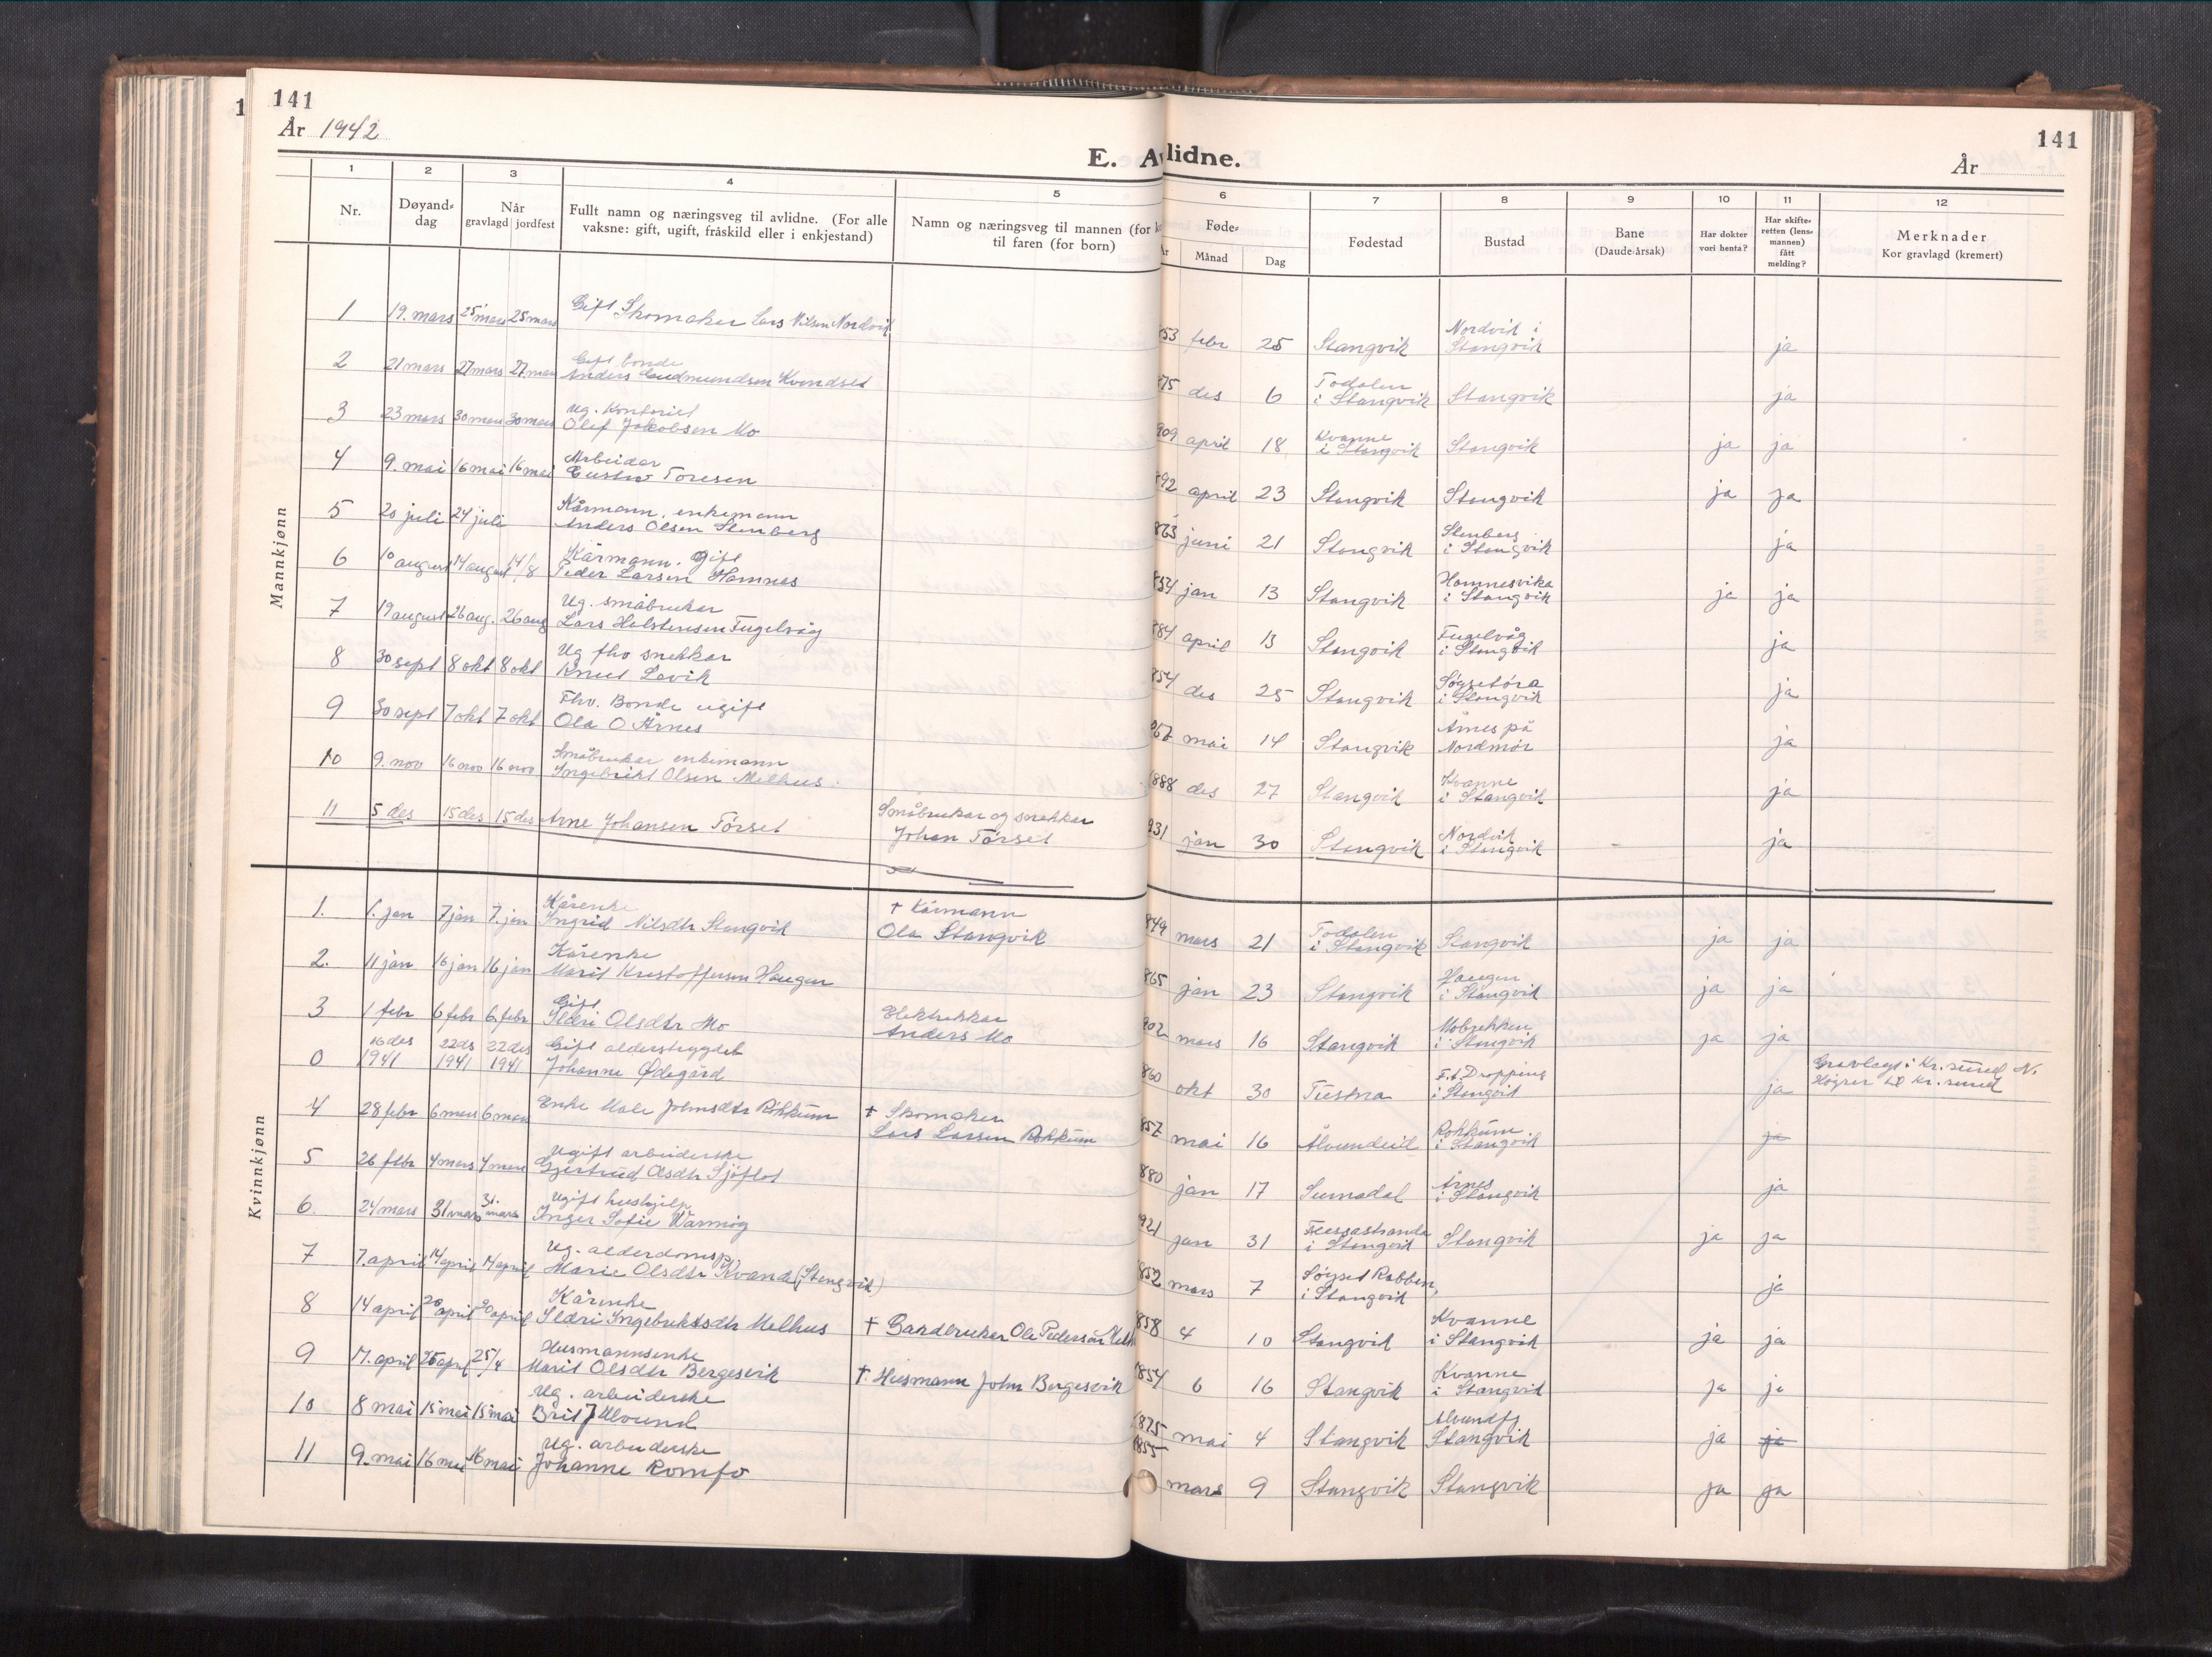 141
År 1942
E. Avlidne.
141
År
1 2 3 4 5 6 7 8 9 10 11 12
Nr.
Døyand-
dag
Når
gravlagd jordfest
Fullt namn og næringsveg til avlidne. (For alle
vaksne: gift, ugift, fråskild eller i enkjestand)
Namn og næringsveg til mannen (for k
til faren (for born)
Føde-
År Månad Dag
Fødestad
Bustad
Bane
(Daude-årsak)
Har dokter
vori henta?
Har skifte-
retten (lens-
mannen)
fått
melding?
Merknader
Kor gravlagd (kremert)
Mannkjønn
1 19. mars 25 mars 25 mars Gift Skomaker Lars Nilsen Nordvik 853 febr 25 Stangvik Nordvik i
Stangvik ja
2 21 mars 27 mars 27 mars Gift bonde
Anders Gudmundsen Kvendset 875 des 6 Todalen
i Stangvik Stangvik ja
3 23 mars 30 mars 30 mars Ug. kontorist
Olef Jakobsen Mo 909 april 18 Kvanne
i Stangvik Stangvik ja ja
4 9. mai 16 mai 16 mai Arbeidar
Gustav Toresen 892 april 23 Stangvik Stangvik ja ja
5 20 juli 24 juli Kårmann, enkemann
Anders Olsen Stenberg 863 juni 21 Stangvik Stenberg
i Stangvik ja
6 10 august 14 august 14/8 Kårmann. Gift
Peder Larsen Hamnes 854 jan 13 Stangvik Hamnesvika
i Stangvik ja ja
7 19 august 26 aug. 26 aug Ug. småbrukar
Lars Halstensen Fugelvåg 884 april 13 Stangvik Fugelvåg
i Stangvik ja
8 30 sept 8 okt 8 okt Ug fhv snekkar
Knut Levik 854 des 25 Stangvik Søgsetøra
i Stangvik ja
9 30 sept 7 okt 7 okt Fhv. Bonde ugift
Ola O Årnes 867 mai 14 Stangvik Årnes på
Nordmør ja
10 9. nov 16 nov 16 nov Småbrukar enkemann
Ingebrikt Olsen Melhus 1888 des 27 Stangvik Kvanne
i Stangvik ja
11 5 des 15 des 15 des Arne Johansen Tørset Småbrukar og snekkar
Johan Tørset 931 jan 30 Stangvik Nordvik
i Stangvik ja
Kvinnkjønn
1. 1. jan 7 jan 7. jan Kårenke
Ingrid Nilsdtr Stangvik † Kårmann
Ola Stangvik 849 mars 21 Todalen
i Stangvik Stangvik ja ja
2. 11 jan 16 jan 16 jan Kårenke
Marit Kristoffersen Haugen 865 jan 23 Stangvik Haugen
i Stangvik ja ja
3 1 febr 6 febr 6 febr Gift
Sidri Olsdtr Mo Elektrikkar
Anders Mo 902 mars 16 Stangvik Mobrekken
i Stangvik ja ja
0 16 des
1941 22 des
1941 22 des
1941 Gift alderstrygdet
Johanne Ødegård 860 okt 30 Tustna F.t. Dropping
i Stangvik ja Gravlagt i Kr.sund N.
til Kr.sund
4 28 febr 6 mars 6 mars Enke Male Johnsdtr Røkkum † Skomaker
Lars Larsen Røkkum 857 mai 16 Ålvundeid Røkkum
i Stangvik ja
5 26 febr 4 mars 4 mars Ugift arbeiderske
Gjertrud Olsdtr Sjøflot 880 jan 17 Surnadal Årnes
i Stangvik ja
6. 24 mars 31 mars 31.
mars Ugift hushjelp
Inger Sofie Vårmog 921 jan 31 Fussastranda
i Stangvik Stangvik ja ja
7 7. april 14 april 14 april Ug. alderdomsp.
Marie Olsdtr Kvande (Stangvik) 852 mars 7 Søgset Røbben,
i Stangvik ja
8 14 april 20 april 20 april Kårenke
Sidri Ingebriktsdtr Melhus † Gardbruker Ole Pedersen Melh 858 4 10 Stangvik Kvanne
i Stangvik ja ja
9 17. april 25 april 25/4 Husmannsenke
Marit Olsdtr Bergesvik † Husmann John Bergesvik 1854 6 16 Stangvik Kvanne
i Stangvik ja ja
10 8 mai 15 mai 15 mai Ug. arbeiderske
Brit J Alvund 1875 mai 4 Stangvik Alvundfj
Stangvik ja ja
11 9. mai 16 mai 16 mai Ug. arbeiderske
Johanne Romfo 1855 mars 9 Stangvik Stangvik ja ja